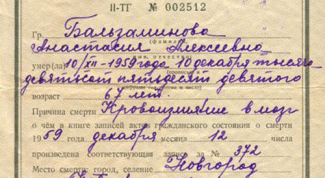 II-ТГ № 002512
Гр. Бальзаминова
Анастасия Алексеевна
умер(ла) 10/XII-1959 года 10 декабря тысяча
девятьсот пятьдесят девятого
возраст 67 лет
Причина смерти Кровоизлияние в мозг
о чём в книге записей актов гражданского состояния о смерти
1959 года декабря месяца 12 числа
произведена соответствующая запись за № 372
Место смерти: город, селение Новгород